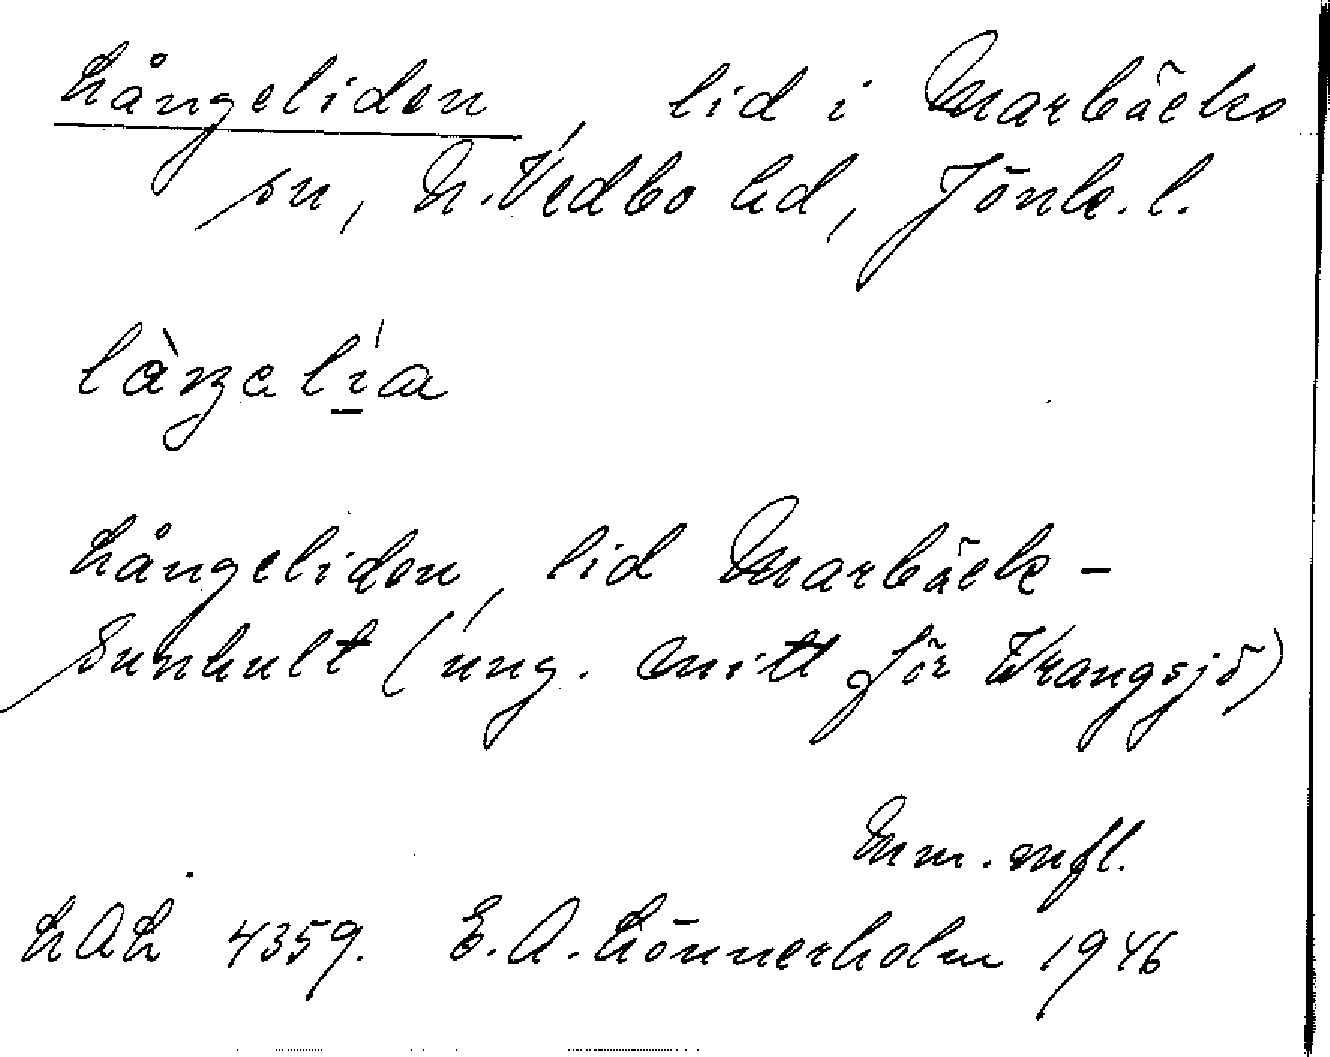 Långeliden, lid i Marbäcks
sn, N. Vedbo hd, Jönk. l.
làŋalía
Långeliden, lid Marbäck-
Sunhult (ung. mitt för Vrangsjö)
Mm. mfl.
LAL 4359. E. A. Lönnerholm 1946